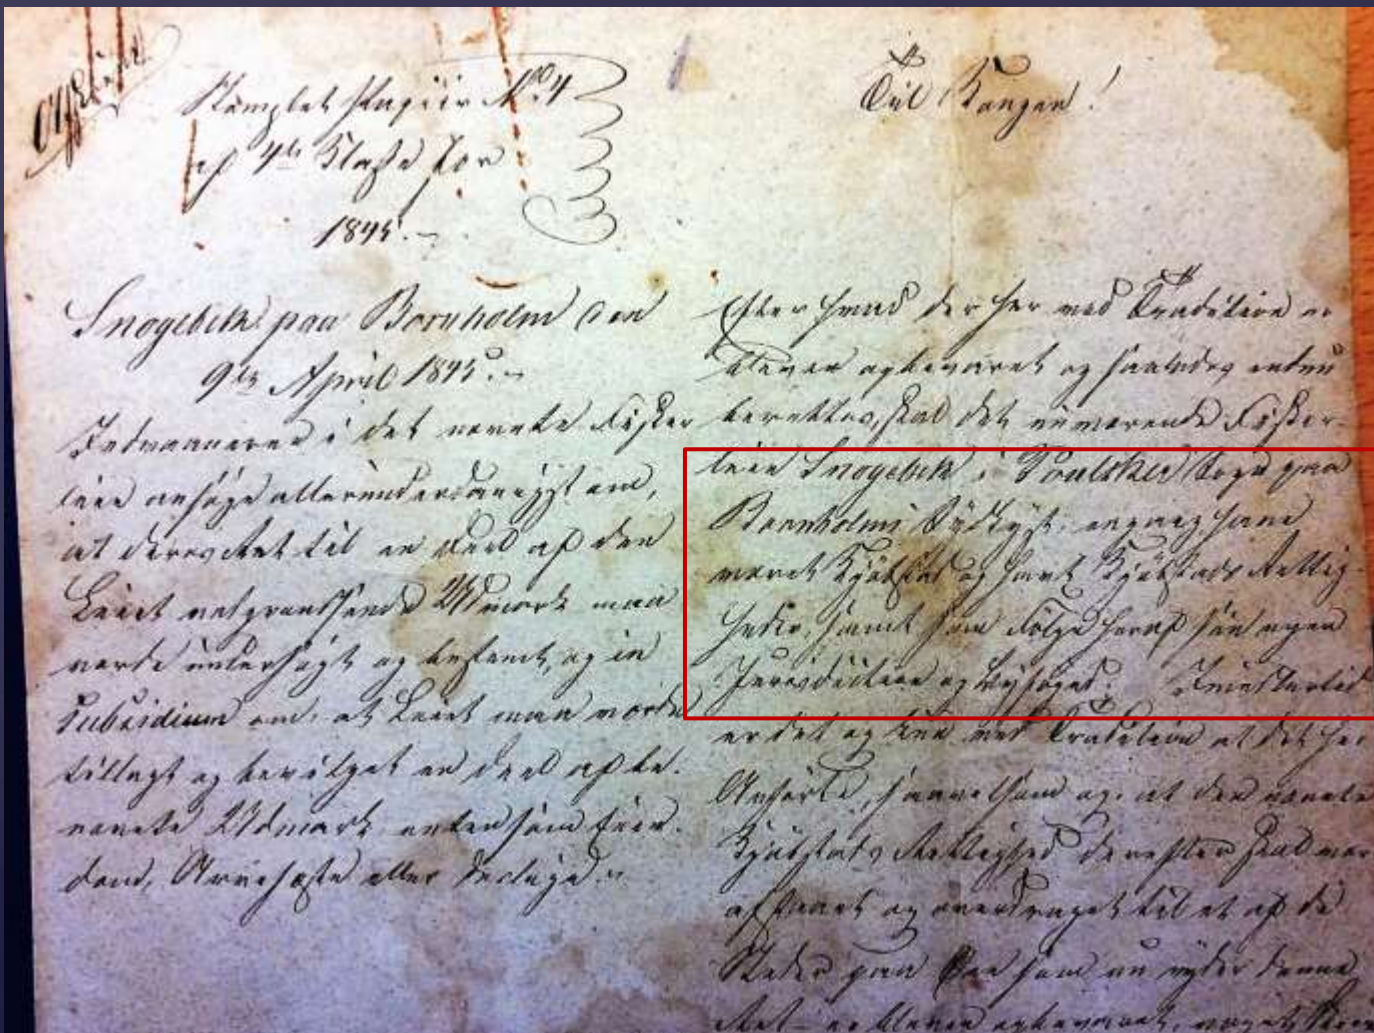 Stemplet Papiir No 4
af 4de Klasse for
1845.
Snogebek paa Bornholm den
9de April 1845.
Indvaanerne i det nævnte Fisker
leie ansøge allerunderdanigst om,
at deres Ret til en Deel af den
Leiet nætgrændsende Udmark maa
vorde undersøgt og bestemt, og in
subsidium om, at Leiet maa vorde
tillagt og bevilget en Deel af be-
nævnte Udmark enten som Eien-
dom, Arvefæste eller deslige.
Til Kongen!
Efter hvad der her ved Tradition er
bleven opbevaret og saaledes endnu
berettes, skal det nuværende Fisker-
leie Snogebek i Poulsker Sogn paa
Bornholms Sydkyst engang have
været Kjøbstad og havt Kjøbstads Rettig-
heder, samt som Følge heraf sin egen
Jurisdiction og Byfoged. Imidlertid
er det og kun ved Tradition at det her
Anførte, saavelsom og, at den nævnte
Kjøbstads Rettighed derefter skal være
afstaaet og overdraget til et af de
Steder paa Øen som nu nyder denne
Ret er bleven opbevaret,